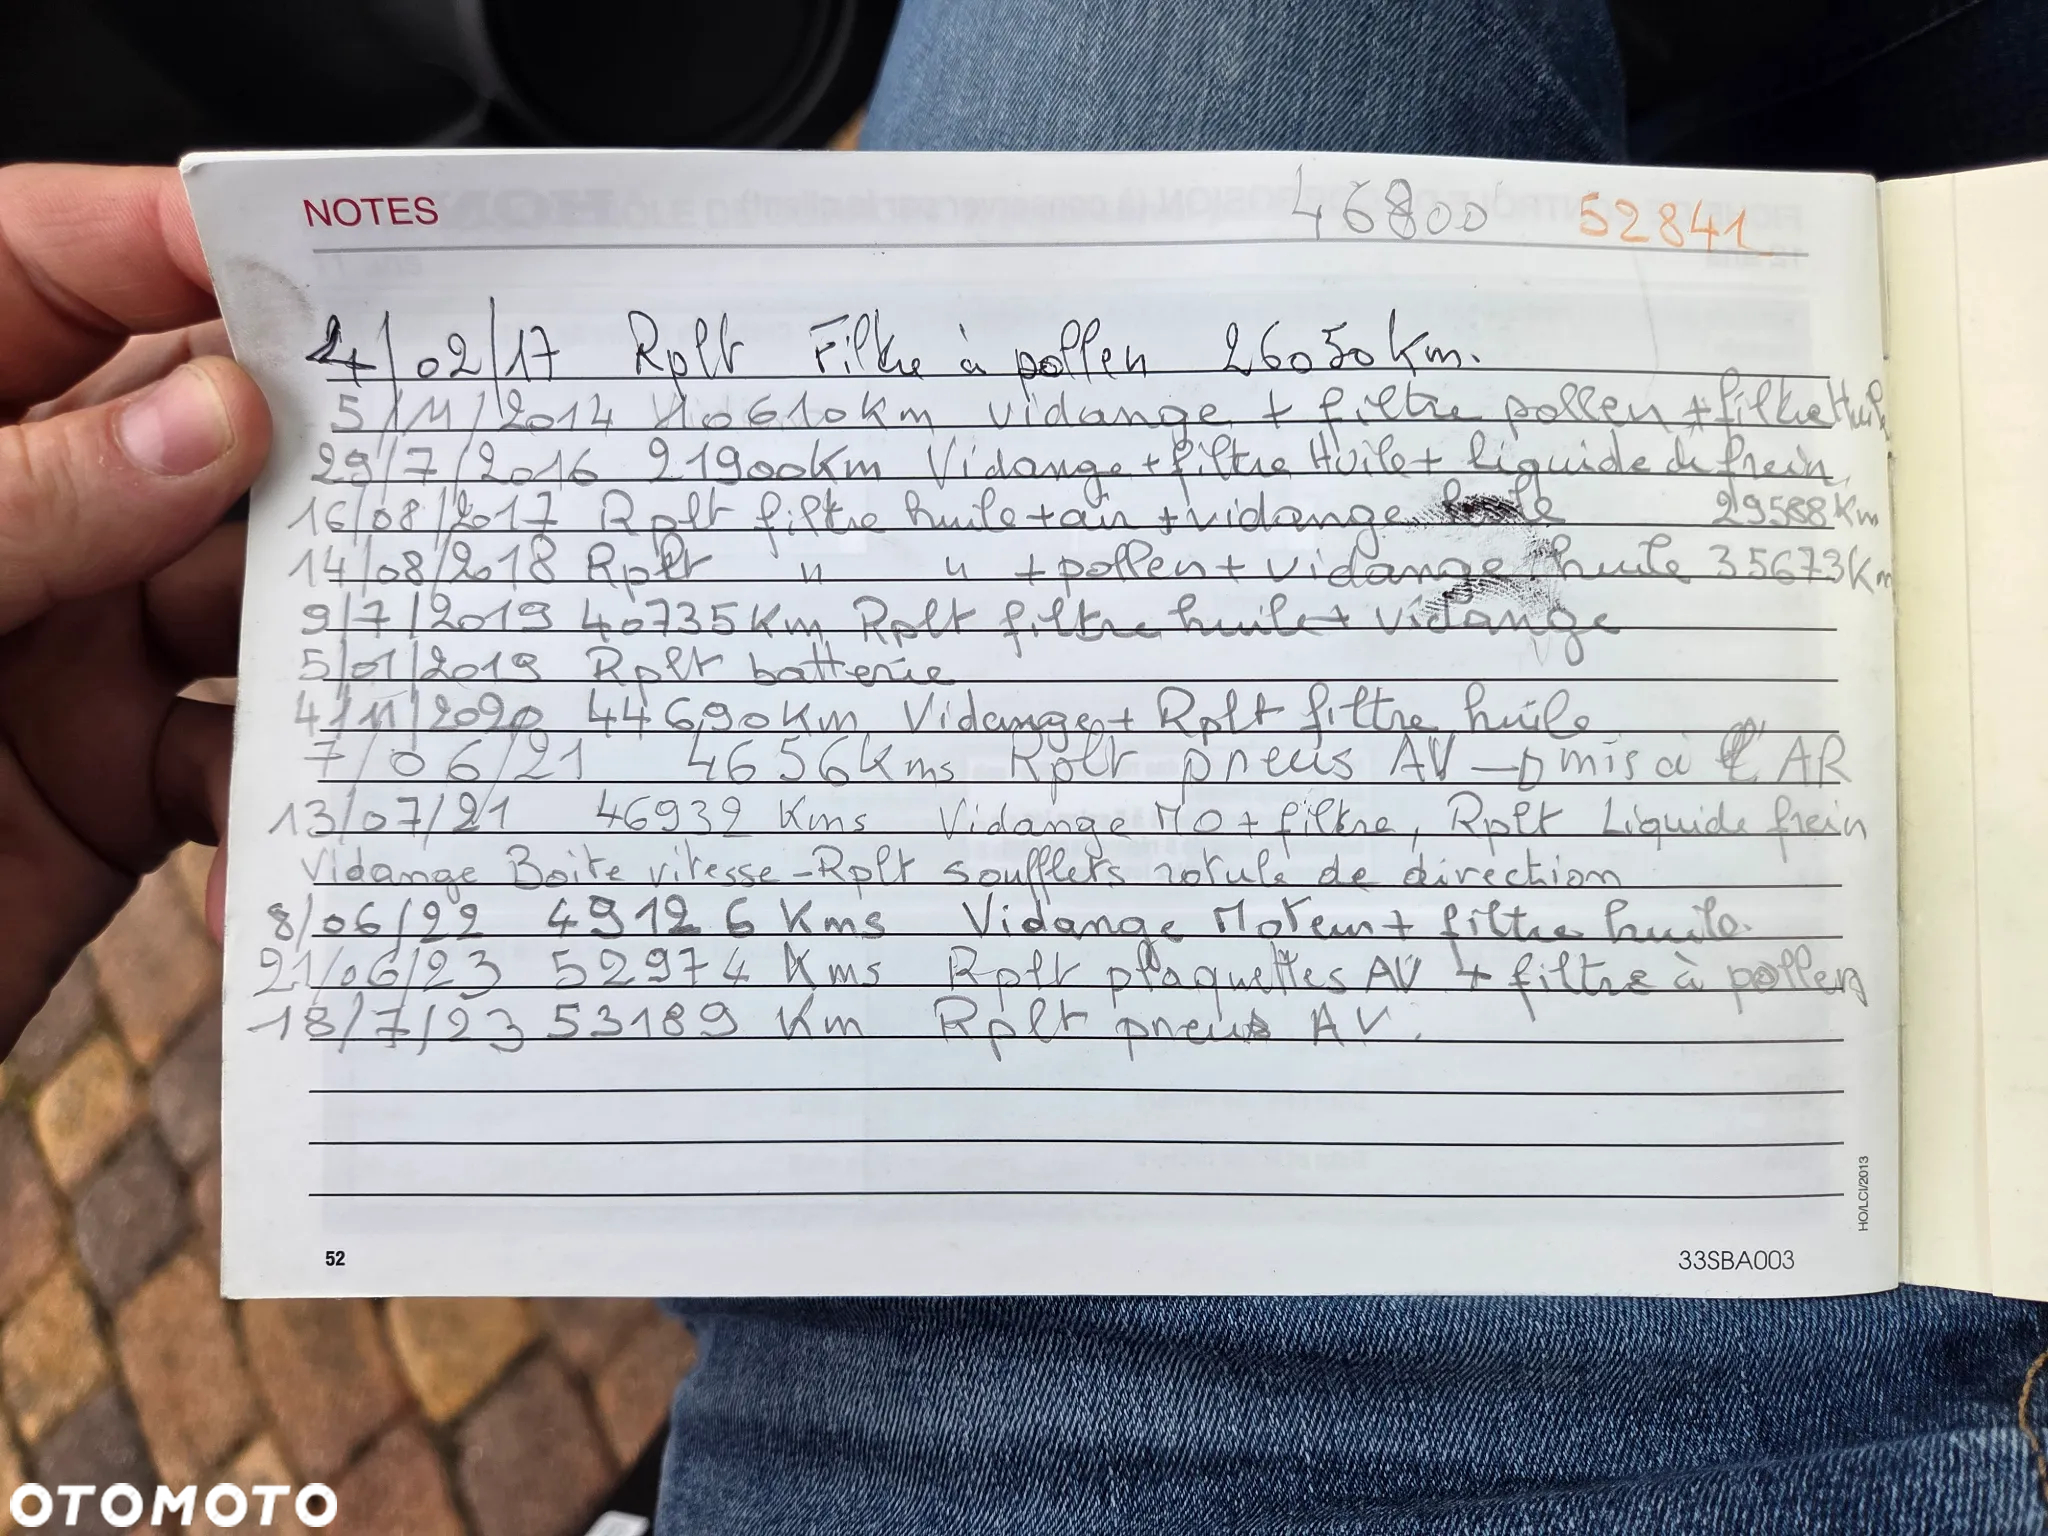 NOTES 46800 52841
4/02/17 Rplt Filtre à pollen 26050 Km.
5/11/2014 10610 Km Vidange + filtre pollen + filtre Huile
29/7/2016 21900 Km Vidange + filtre Huile + liquide de frein
16/08/2017 Rplt filtre huile + air + vidange huile 29588 Km
14/08/2018 Rplt " " + pollen + vidange huile 35673 Km
9/7/2019 40735 Km Rplt filtre huile + vidange
5/01/2019 Rplt batterie
4/11/2020 44690 Km Vidange + Rplt filtre huile
7/06/21 4656 Kms Rplt pneus AV → mis à l'AR
13/07/21 46932 Kms Vidange MO + filtre, Rplt Liquide frein
Vidange Boite vitesse - Rplt soufflets rotule de direction
8/06/22 49126 Kms Vidange Moteur + filtre huile.
21/06/23 52974 Kms Rplt plaquettes AV + filtre à pollen
18/7/23 53189 Km Rplt pneus AV.
HO/LCI/2013
52 33SBA003
OTOMOTO